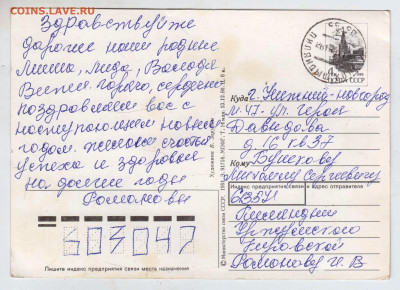 COINSS.RU
САЙТ
Здравствуйте
дорогие наши родные
Миша, Лида, Володя
Витя. Горячо, сердечно
поздравляем вас с
наступлением нового
годом. желаем счастья
успеха и здоровья
на долгие годы
Романовы
603047
Пишите индекс предприятия связи места назначения
© Министерство связи СССР. 1991.
ПОЧТА СССР
Куда г. Нижний-новгород
М-47 ул. Героя
Давыдова
д. 16 кв 37
Кому
Михаилу Сергеевичу
Индекс предприятия связи и адрес отправителя
Кировской
Романову И. В